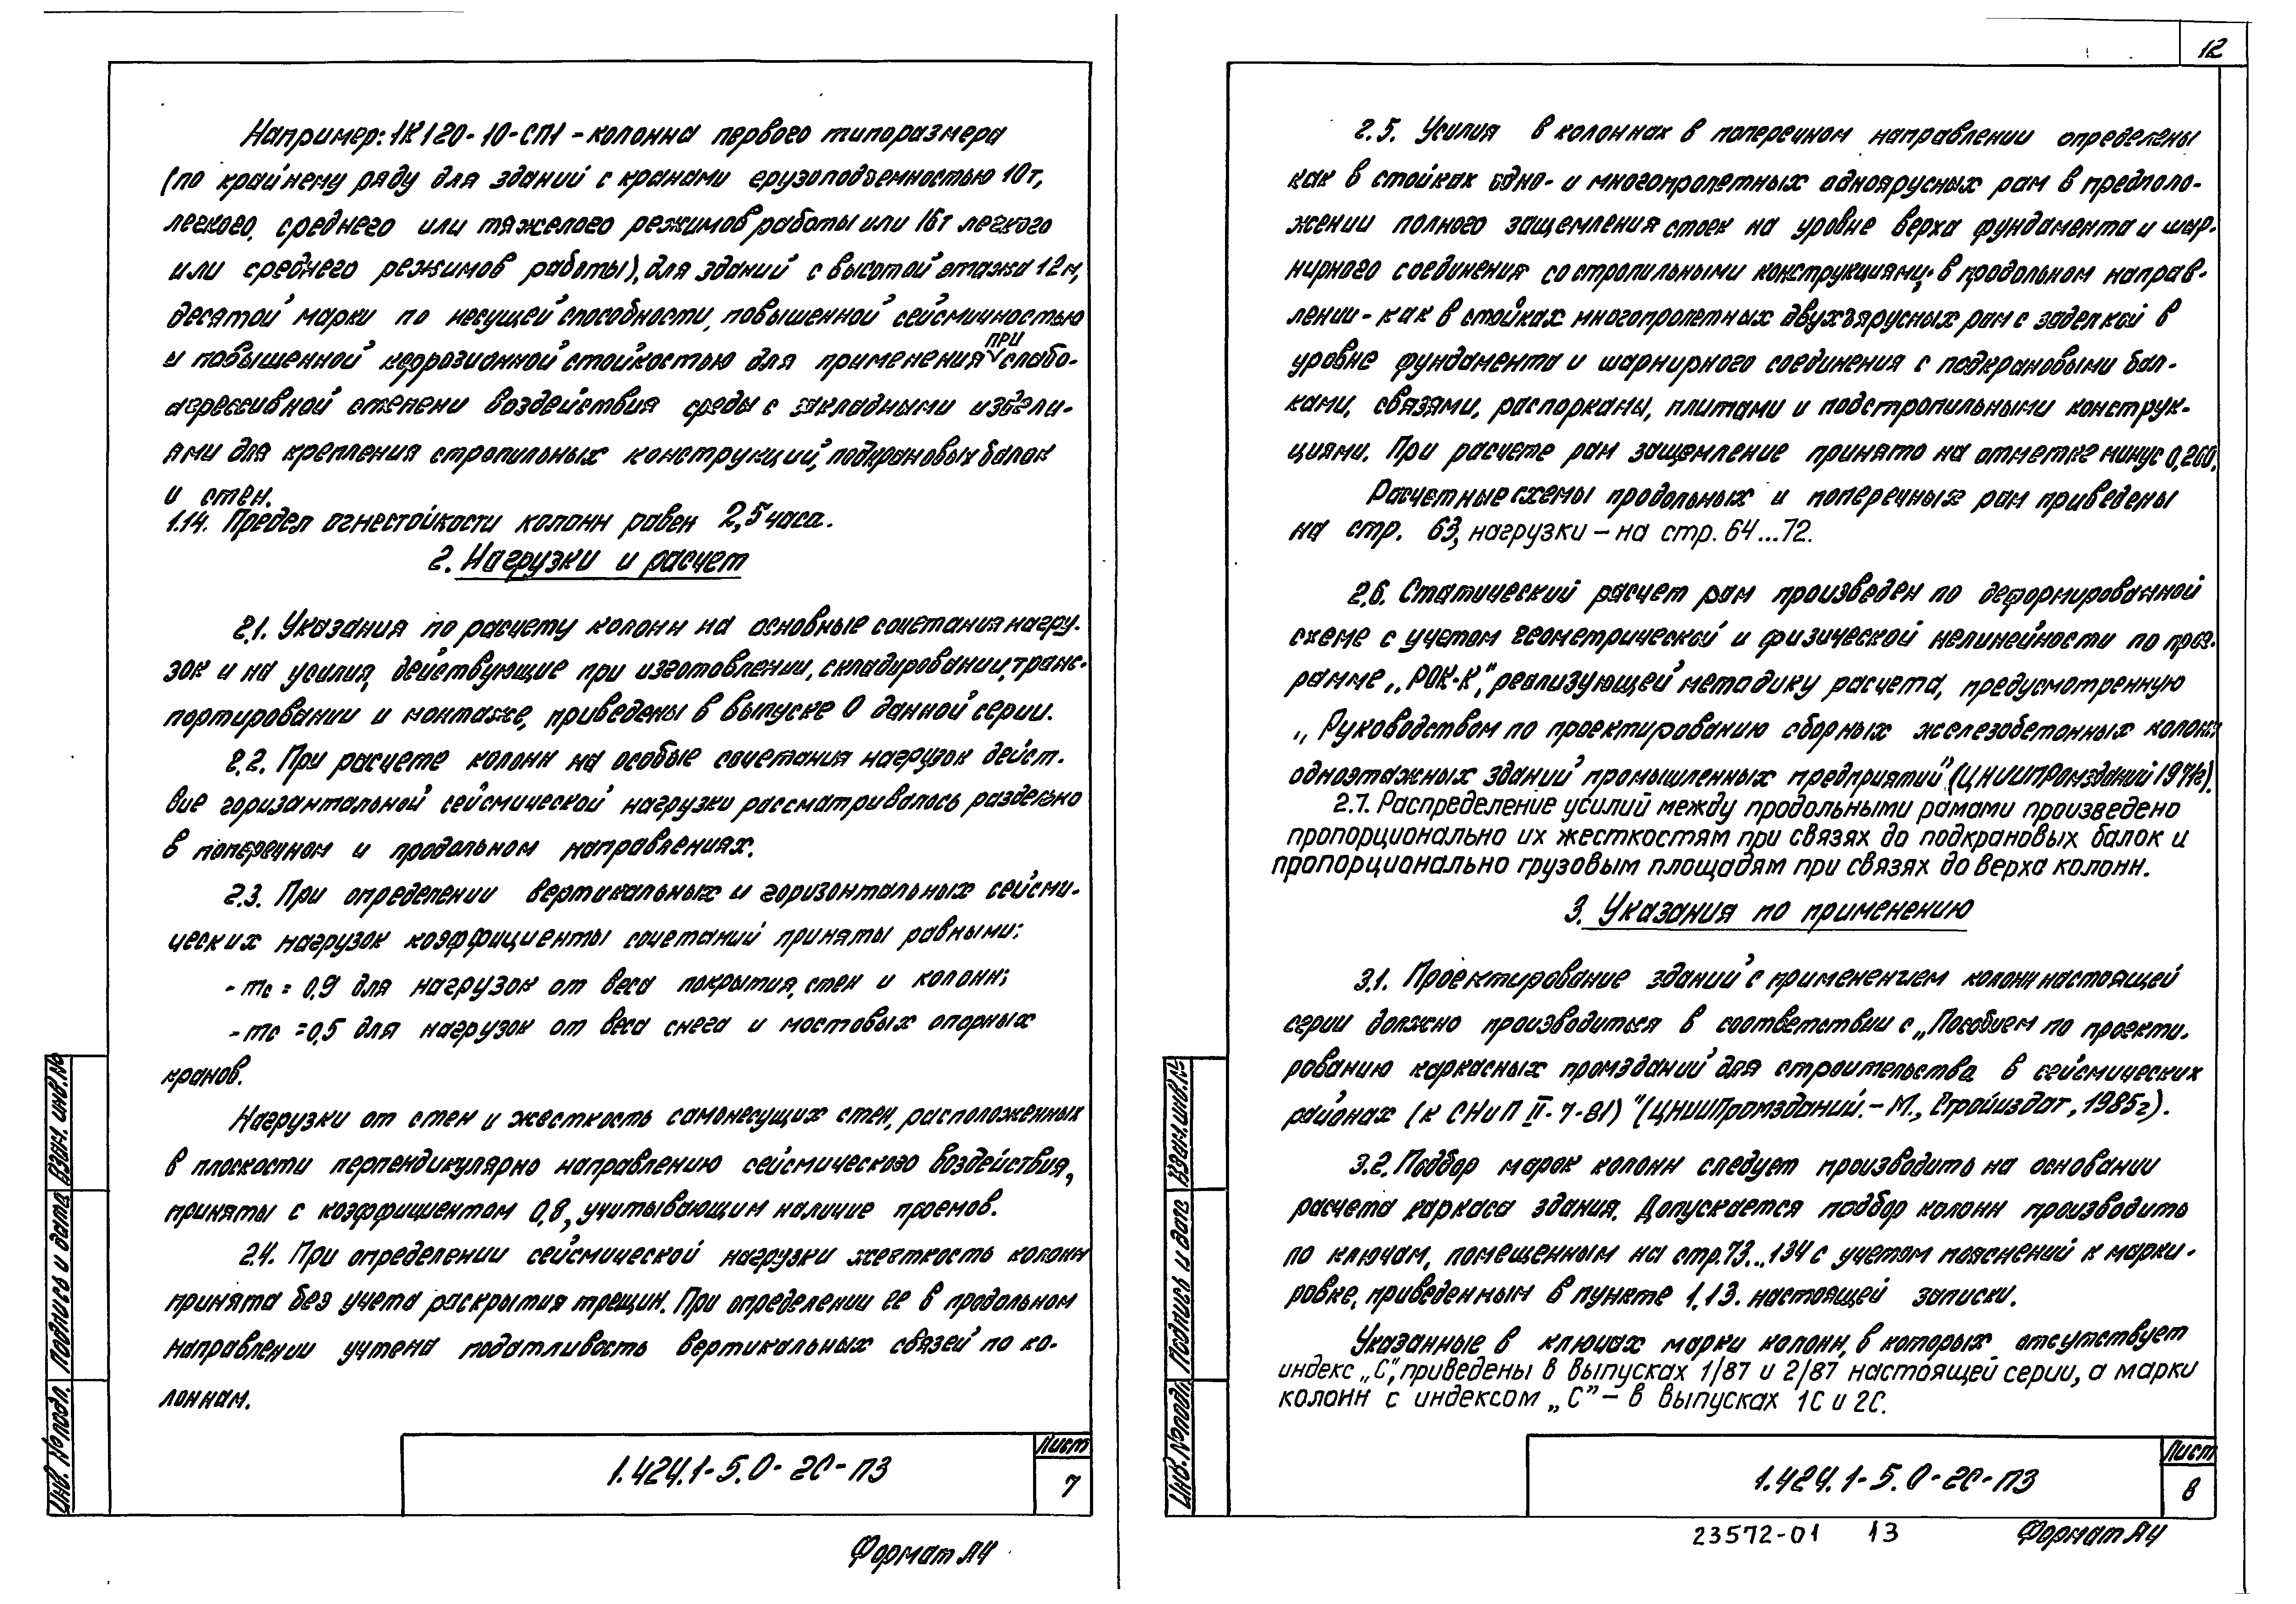 Например: 1К120-10-СП1 - колонна первого типоразмера
(по крайнему ряду для зданий с кранами грузоподъемностью 10т,
легкого, среднего или тяжелого режимов работы или 16т легкого
или среднего режимов работы), для зданий с высотой этажа 12м,
десятой марки по несущей способности, повышенной сейсмичностью
при
и повышенной коррозионной стойкостью для применения слабо-
агрессивной степени воздействия среды с закладными издели-
ями для крепления стропильных конструкций, подкрановых балок
и стен.
1.14. Предел огнестойкости колонн равен 2,5 часа.
2. Нагрузки и расчет
2.1. Указания по расчету колонн на основные сочетания нагру-
зок и на усилия, действующие при изготовлении, складировании, транс-
портировании и монтаже, приведены в выпуске 0 данной серии.
2.2. При расчете колонн на особые сочетания нагрузок дейст-
вие горизонтальной сейсмической нагрузки рассматривалось раздельно
в поперечном и продольном направлениях.
2.3. При определении вертикальных и горизонтальных сейсми-
ческих нагрузок коэффициенты сочетаний приняты равными:
- mc = 0,9 для нагрузок от веса покрытия, стен и колонн;
- mc = 0,5 для нагрузок от веса снега и мостовых опорных
кранов.
Нагрузки от стен и жесткость самонесущих стен, расположенных
в плоскости перпендикулярно направлению сейсмического воздействия,
приняты с коэффициентом 0,8, учитывающим наличие проемов.
2.4. При определении сейсмической нагрузки жесткость колонн
принята без учета раскрытия трещин. При определении ее в продольном
направлении учтена податливость вертикальных связей по ко-
лоннам.
1.424.1-5.0-2С-ПЗ
Лист
7
Формат А4
Инв. № подл.
Подпись и дата
Взам. инв. №
12
2.5. Усилия в колоннах в поперечном направлении определены
как в стойках одно- и многопролетных одноярусных рам в предполо-
жении полного защемления стоек на уровне верха фундамента и шар-
нирного соединения со стропильными конструкциями; в продольном направ-
лении - как в стойках многопролетных двухъярусных рам с заделкой в
уровне фундамента и шарнирного соединения с подкрановыми бал-
ками, связями, распорками, плитами и подстропильными конструк-
циями. При расчете рам защемление принято на отметке минус 0,200.
Расчетные схемы продольных и поперечных рам приведены
на стр. 63, нагрузки - на стр. 64...72.
2.6. Статический расчет рам произведен по деформированной
схеме с учетом геометрической и физической нелинейности по прог-
рамме „РОК-К“, реализующей методику расчета, предусмотренную
„Руководством по проектированию сборных железобетонных колонн
одноэтажных зданий промышленных предприятий" (ЦНИИПромзданий 1974г).
2.7. Распределение усилий между продольными рамами произведено
пропорционально их жесткостям при связях до подкрановых балок и
пропорционально грузовым площадям при связях до верха колонн.
3. Указания по применению
3.1. Проектирование зданий с применением колонн настоящей
серии должно производиться в соответствии с „Пособием по проекти-
рованию каркасных промзданий для строительства в сейсмических
районах (к СНиП II-7-81)" (ЦНИИПромзданий. - М., Стройиздат, 1985г).
3.2. Подбор марок колонн следует производить на основании
расчета каркаса здания. Допускается подбор колонн производить
по ключам, помещенным на стр. 73...134 с учетом пояснений к марки-
ровке, приведенным в пункте 1.13. настоящей записки.
Указанные в ключах марки колонн, в которых отсутствует
индекс „С“, приведены в выпусках 1/87 и 2/87 настоящей серии, а марки
колонн с индексом „С" - в выпусках 1С и 2С.
1.424.1-5.0-2С-ПЗ
Лист
8
23572-01 13 Формат А4
Инв. № подл.
Подпись и дата
Взам. инв. №